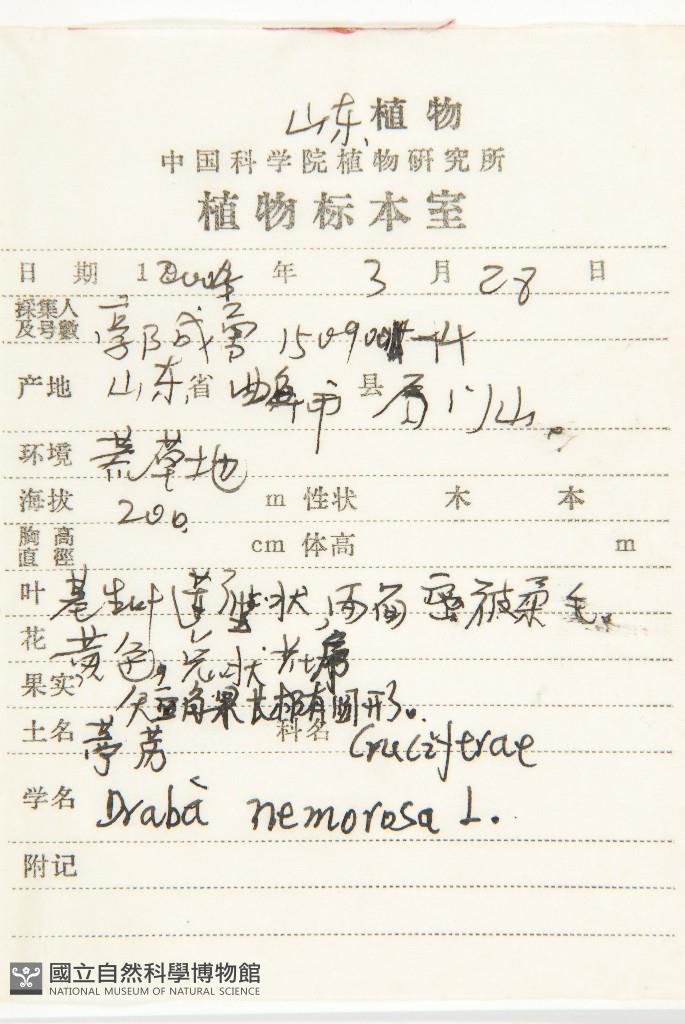 山东植物
中国科学院植物研究所
植物标本室
日期 年 3 月 28 日
採集人及号數
产地 山东省 曲阜市 县 山
环境 荒草地
海拔 200 m 性状 木 本
胸高直徑 cm 体高 m
叶 基生叶莲座状,两面密被柔毛。
花 黄色。总状花序
果实 短角果长椭圆形。
土名 葶苈 科名 Cruciferae
学名 Draba nemorosa L.
附记
國立自然科學博物館
NATIONAL MUSEUM OF NATURAL SCIENCE